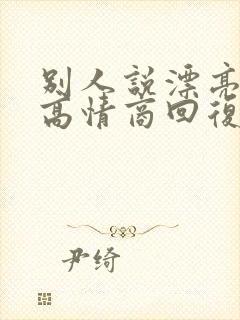 别人説漂亮
高情商回復
尹绮